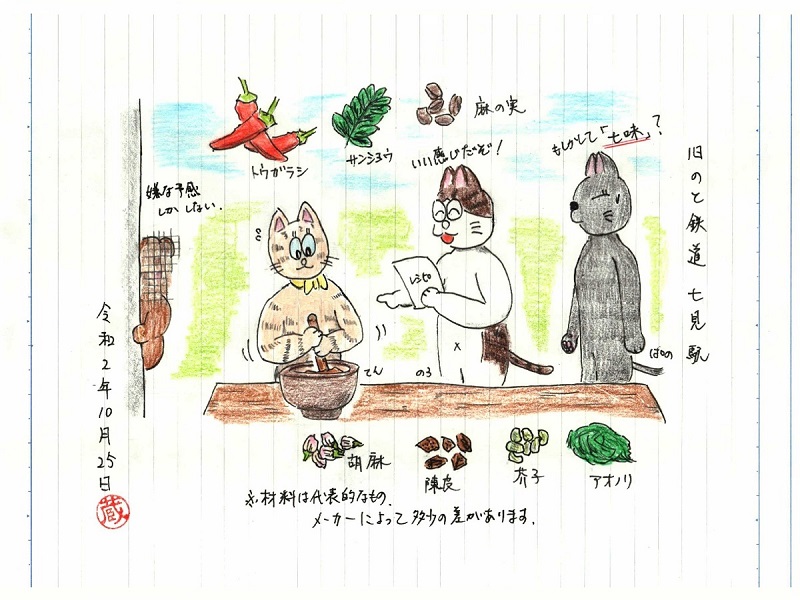 旧のと鉄道 七見駅
もしかして「七味」?
いい感じだぞ!
嫌な予感
しかしない.
トウガラシ
サンショウ
麻の実
レシピ
てん
のろ
ぱの
胡麻
陳皮
芥子
アオノリ
※材料は代表的なもの.
メーカーによって多少の差があります.
令和2年10月25日
蔵